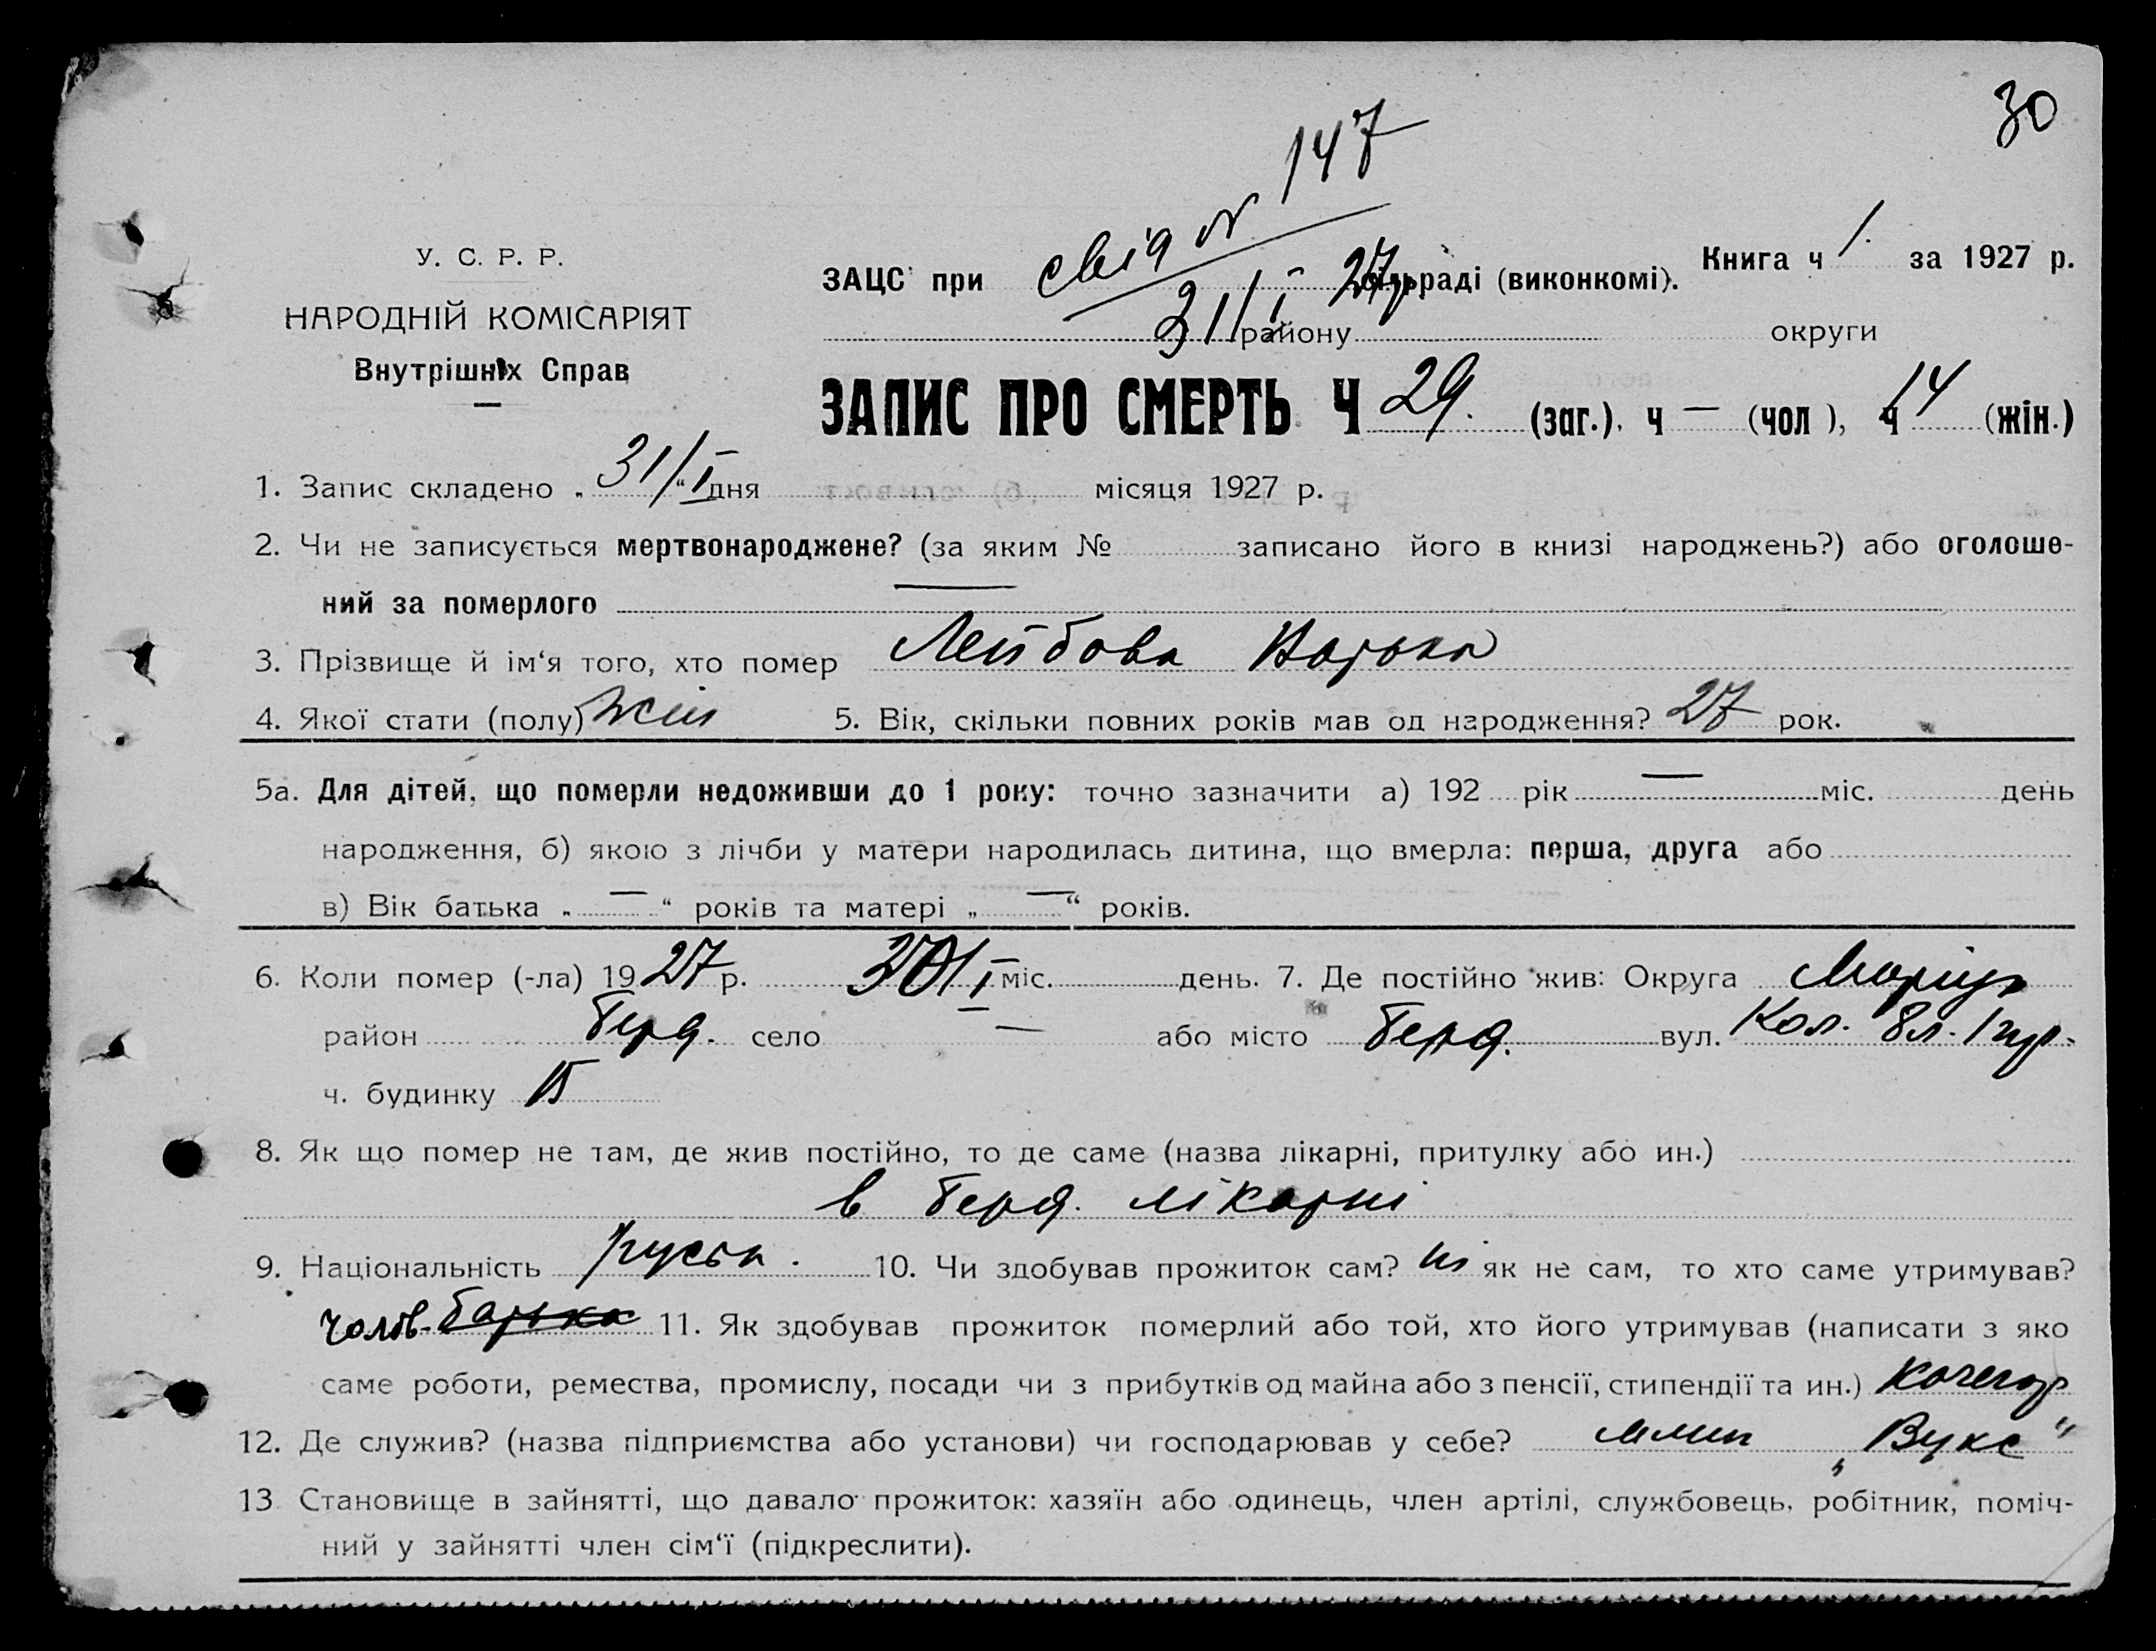 30
147
свід №
У. С. Р. Р.
НАРОДНІЙ КОМІСАРІЯТ
Внутрішніх Справ
ЗАЦС при сільраді (виконкомі). Книга ч 1. за 1927 р.
31/I 27р.
району округи
ЗАПИС ПРО СМЕРТЬ Ч 29. (заг.). ч — (чол ), ч 14 (жін.)
1. Запис складено „ 31/I “ дня місяця 1927 р.
2. Чи не записується мертвонароджене? (за яким № записано його в книзі народжень?) або оголоше-
ний за померлого —
3. Прізвище й ім‘я того, хто помер Лейбова
4. Якої стати (полу) жін 5. Вік, скільки повних років мав од народження? 27 рок.
5а. Для дітей, що померли недоживши до 1 року: точно зазначити а) 192 рік — міс. день
народження, б) якою з лічби у матери народилась дитина, що вмерла: перша, друга або
в) Вік батька „ — “ років та матері „ — “ років.
6. Коли помер (-ла) 19 27 р. 30/I міс. день. 7. Де постійно жив: Округа Маріуп
район Берд. село — або місто Берд. вул. Кол. 8л. 1 пр.
ч. будинку 15
8. Як що помер не там, де жив постійно, то де саме (назва лікарні, притулку або ин.)
в Берд. лікарні
9. Національність руська. 10. Чи здобував прожиток сам? ні як не сам, то хто саме утримував?
чолов. батька 11. Як здобував прожиток померлий або той, хто його утримував (написати з яко
саме роботи, ремества, промислу, посади чи з прибутків од майна або з пенсії, стипендії та ин.) кочегар
12. Де служив? (назва підприємства або установи) чи господарював у себе? млин „Вукс“
13 Становище в зайнятті, що давало прожиток: хазяїн або одинець, член артілі, службовець, робітник, поміч-
ний у зайнятті член сім‘ї (підкреслити).